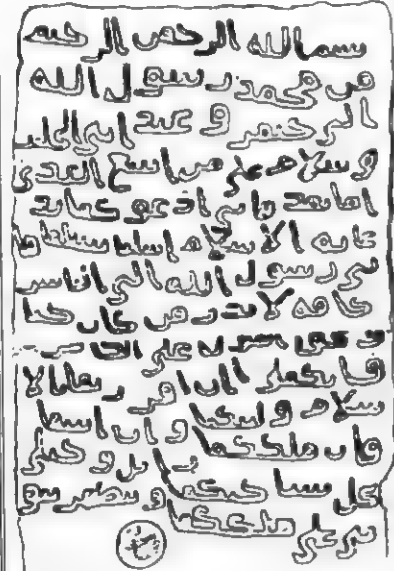 بسم الله الرحمن الرحيم
من محمد رسول الله
الى جيفر و عبد ابني الجلند
وسلام على من اتبع الهدى
اما بعد فاني ادعوكما بد
عاية الاسلام اسلما تسلما فا
ني رسول الله الى الناس
كافة لانذر من كان حيا
ويحق القول على الكافرين
فانكما ان اقررتما بالا
سلام وليتكما وان ابيتما
فان ملككما زائل وخيلي
تحل بساحتكما وتظهر نبو
تي على ملككما